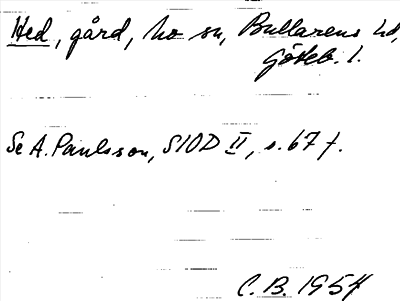 Hed, gård, ho sn, Bullarens hd,
Göteb. l.
Se A. Paulsson, SIOD II, s. 67 f.
C. B. 1954